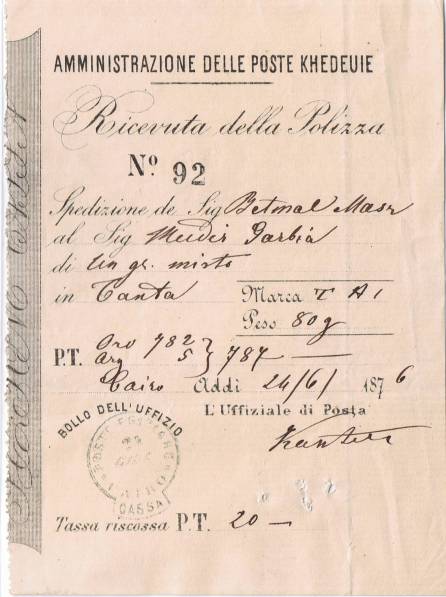 AMMINISTRAZIONE DELLE POSTE KHEDEUIE
Ricevuta della Polizza
Nº 92
Spedizione de Sig Betmal Masr
al Sig Mudir Garbia
di Un gr. misto
in Tanta
Marca T A 1
Peso 80g
P.T. Oro 782
Arg 5 } 787 —
Cairo Addi 24/6/ 1876
L'Uffiziale di Posta
BOLLO DELL'UFFIZIO
POSTE EGIZIANE
CAIRO
CASSA
Tassa riscossa P.T. 20 —